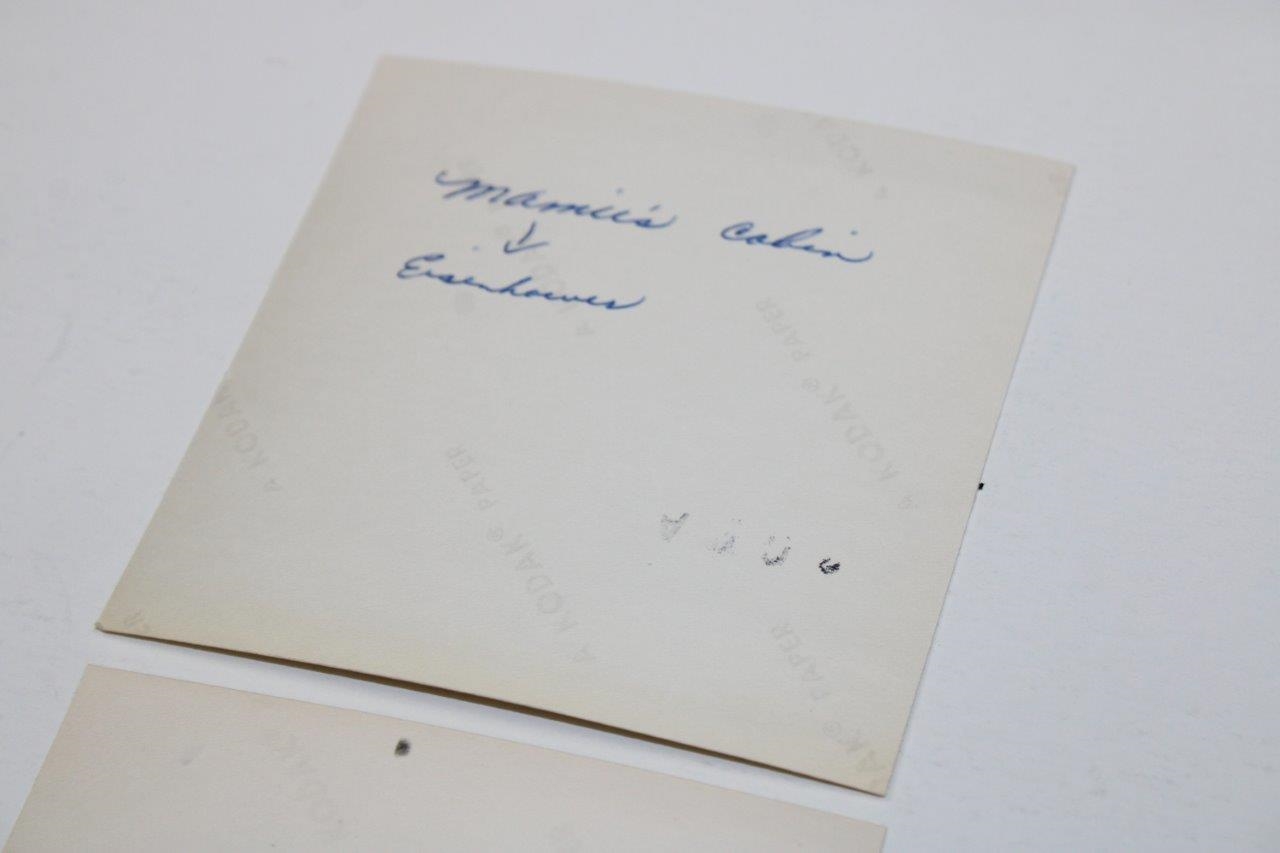 Mamie's Cabin
↓
Eisenhower
A KODAK
A KODAK
A KODAK® PAPER
A KODAK
A KODAK® PAPER
AK® PAPER
KODAK